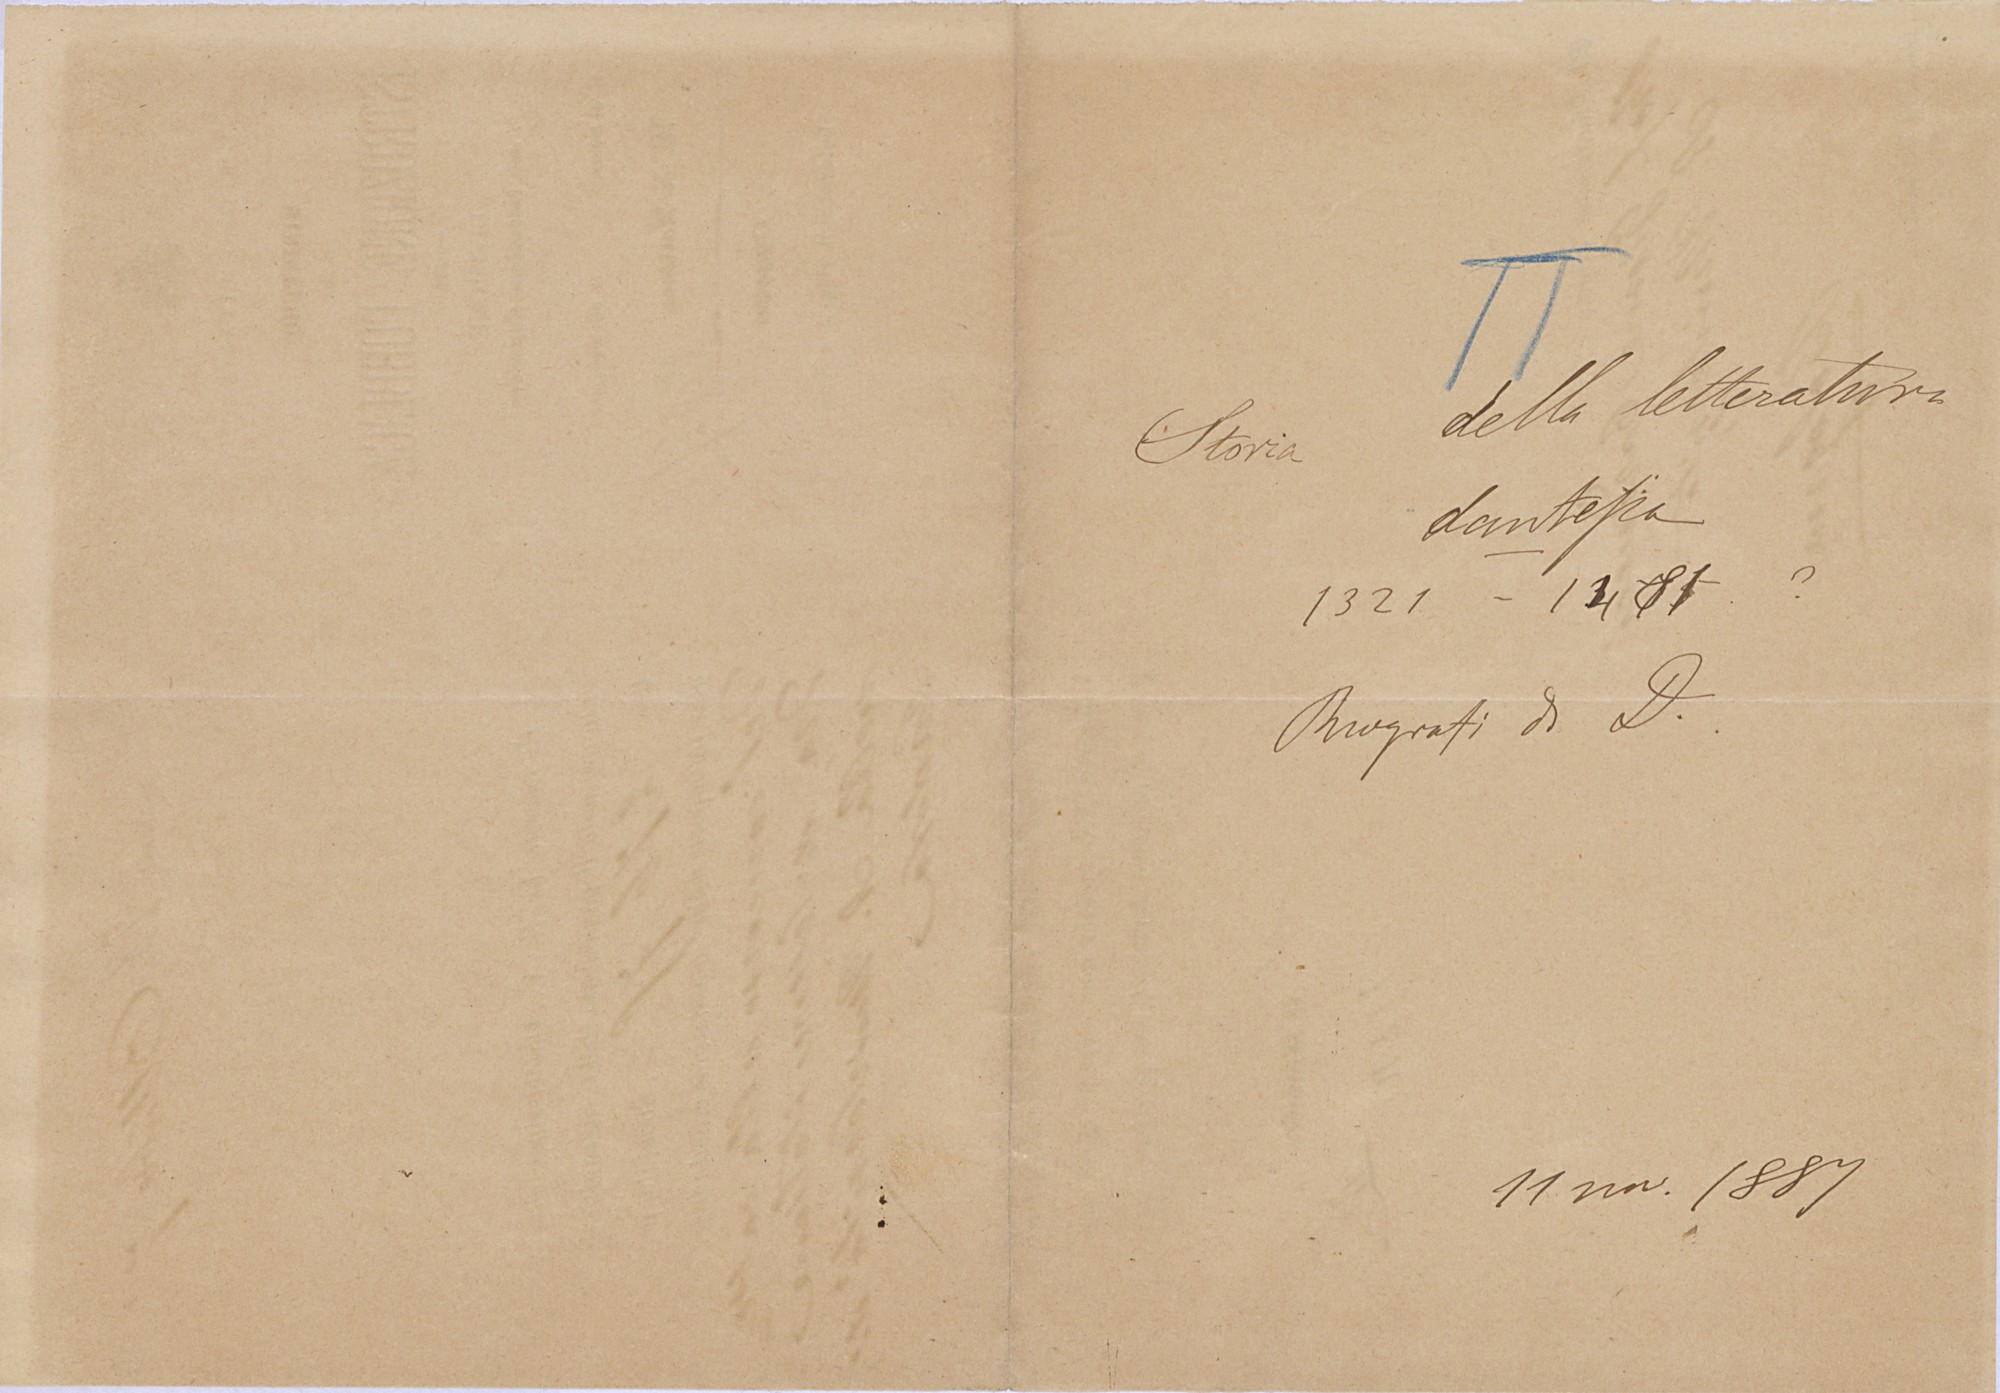 II
Storia della letteratura
dantesca
1321 - 1481 ?
Biografi di D.
11 nov. 1887